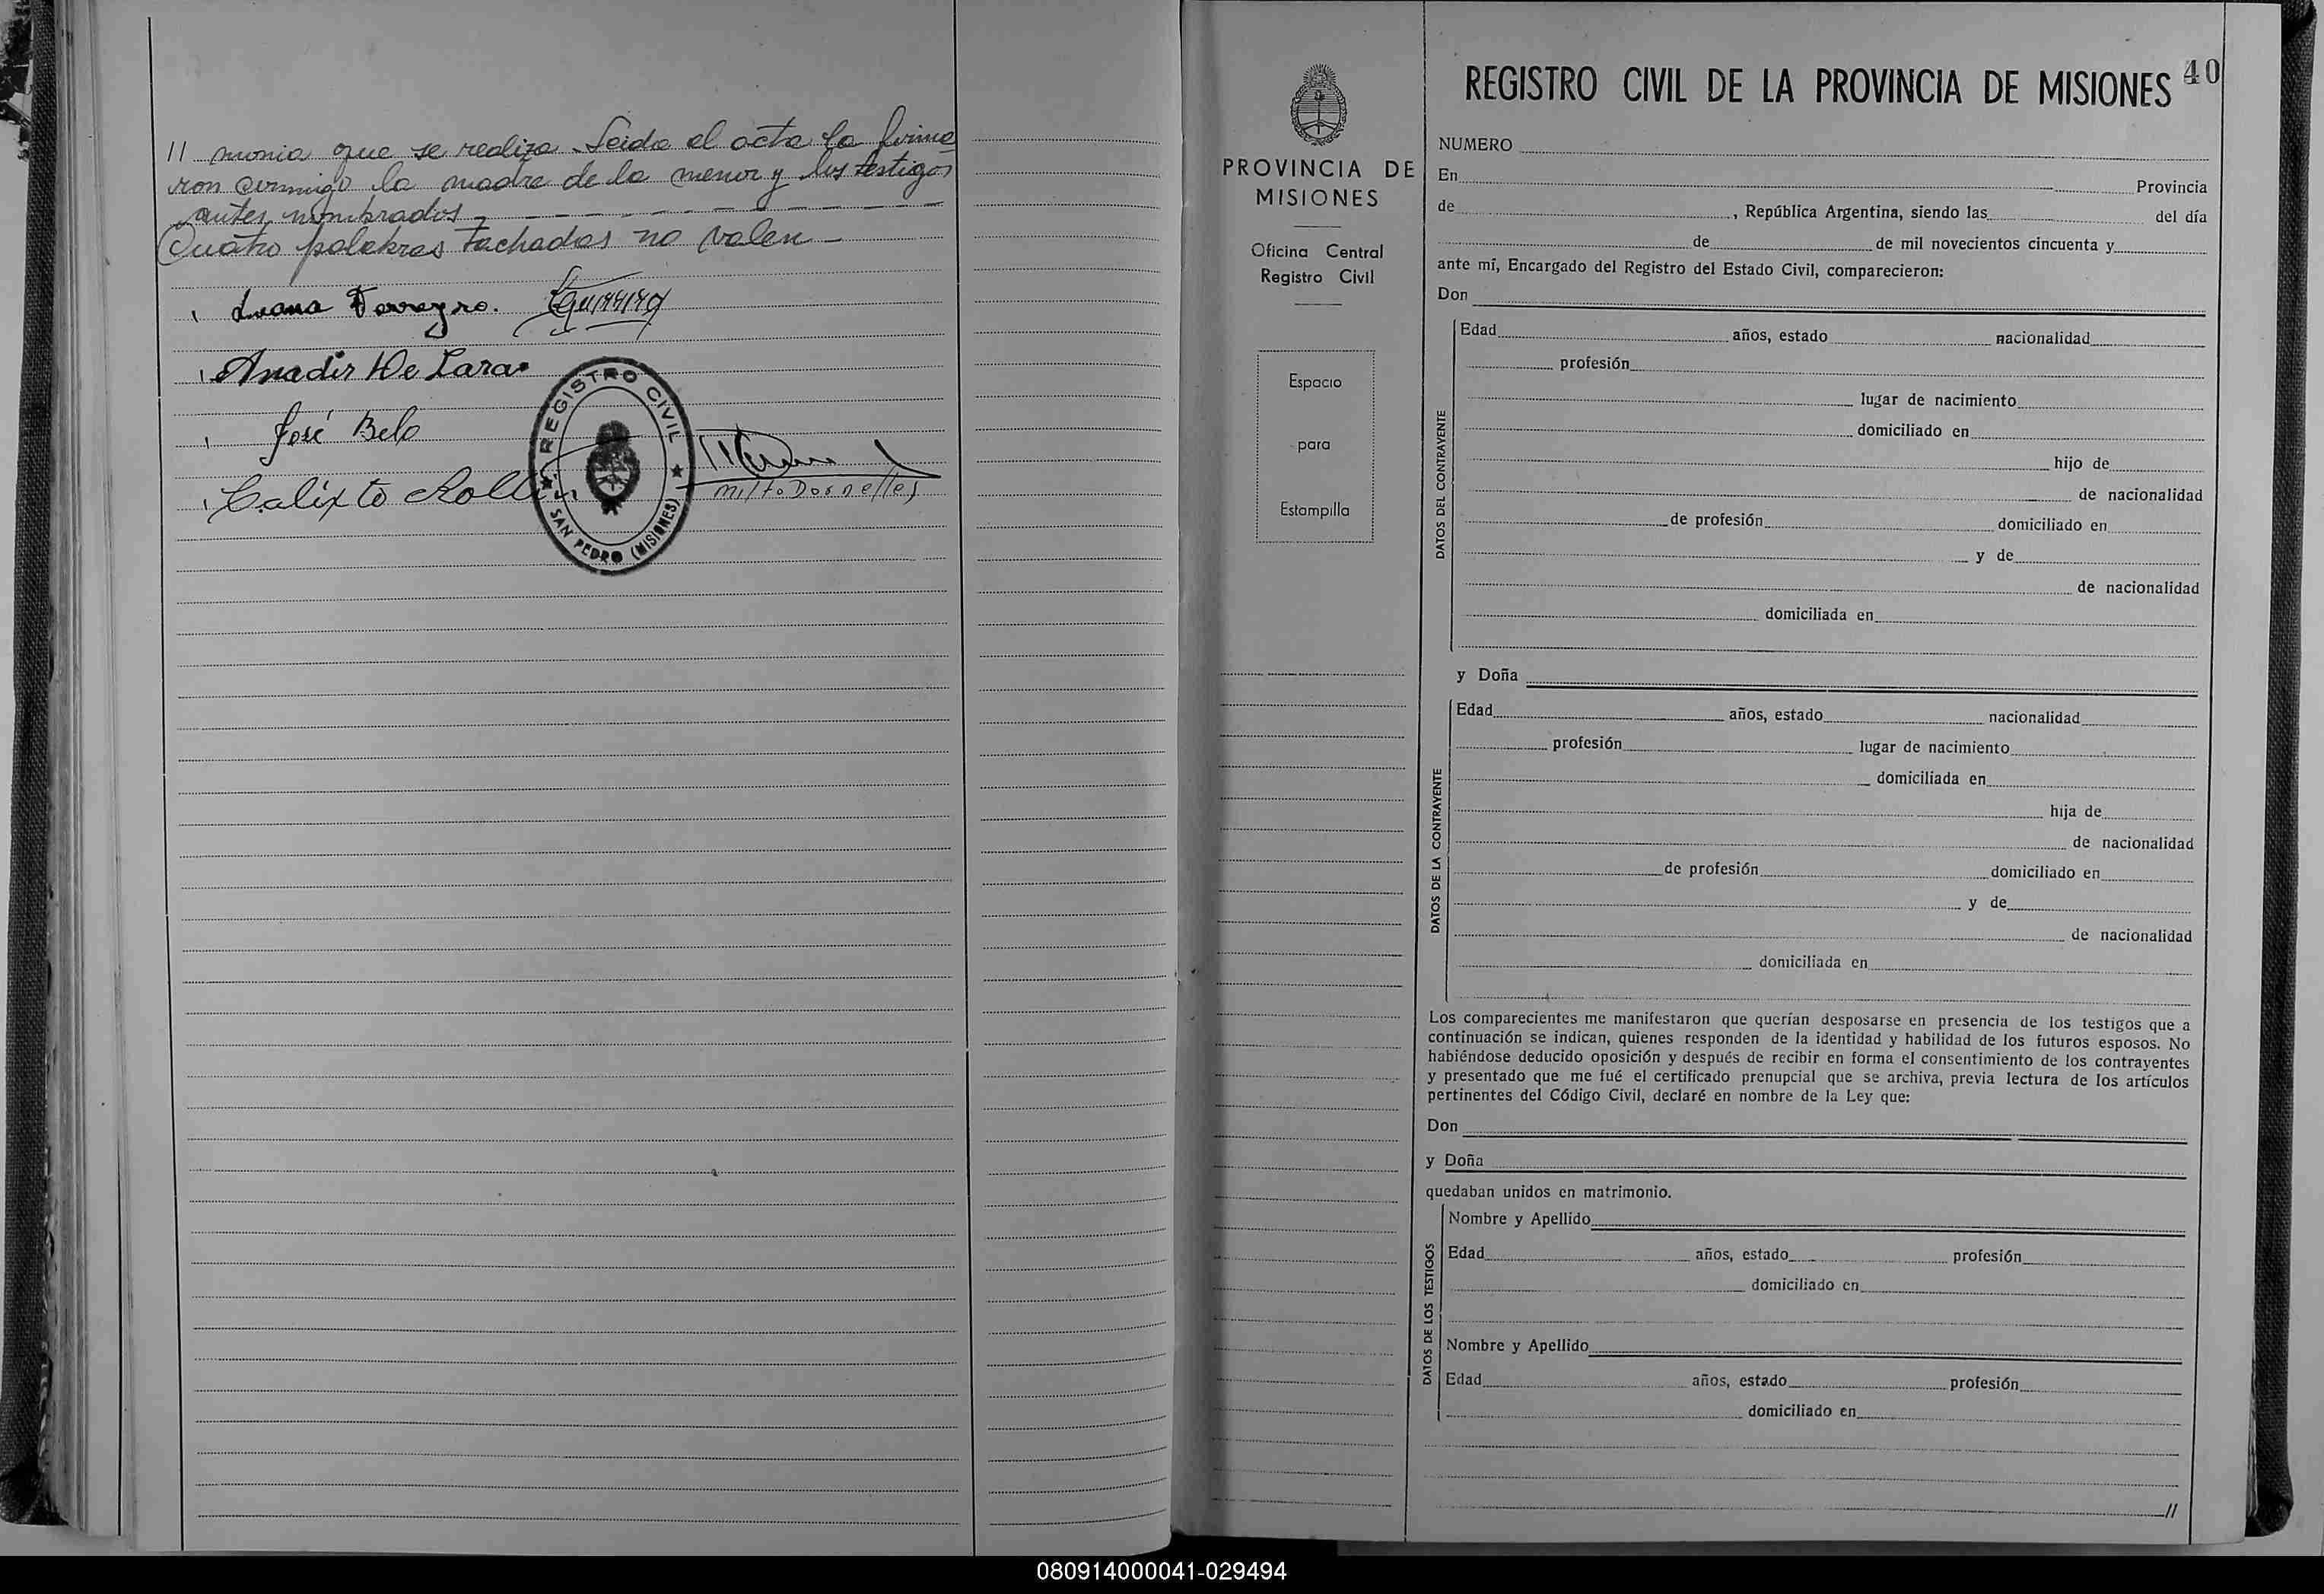 // monia que se realiza. Leida el acta la firma
ron conmigo la madre de la menor y los testigos
antes nombrados
Cuatro palabras tachadas no valen
Anadir De Lara
José Belo
Calixto
REGISTRO CIVIL
SAN PEDRO (MISIONES)
Milto Dornelles
PROVINCIA DE
MISIONES
Oficina Central
Registro Civil
Espacio
para
Estampilla
REGISTRO CIVIL DE LA PROVINCIA DE MISIONES 40
NUMERO
En Provincia
de , República Argentina, siendo las del día
de de mil novecientos cincuenta y
ante mí, Encargado del Registro del Estado Civil, comparecieron:
Don
DATOS DEL CONTRAYENTE
Edad años, estado nacionalidad
profesión
lugar de nacimiento
domiciliado en
hijo de
de nacionalidad
de profesión domiciliado en
y de
de nacionalidad
domiciliada en
y Doña
DATOS DE LA CONTRAYENTE
Edad años, estado nacionalidad
profesión lugar de nacimiento
domiciliada en
hija de
de nacionalidad
de profesión domiciliado en
y de
de nacionalidad
domiciliada en
Los comparecientes me manifestaron que querían desposarse en presencia de los testigos que a
continuación se indican, quienes responden de la identidad y habilidad de los futuros esposos. No
habiéndose deducido oposición y después de recibir en forma el consentimiento de los contrayentes
y presentado que me fué el certificado prenupcial que se archiva, previa lectura de los artículos
pertinentes del Código Civil, declaré en nombre de la Ley que:
Don
y Doña
quedaban unidos en matrimonio.
DATOS DE LOS TESTIGOS
Nombre y Apellido
Edad años, estado profesión
domiciliado en
Nombre y Apellido
Edad años, estado profesión
domiciliado en
//
080914000041-029494